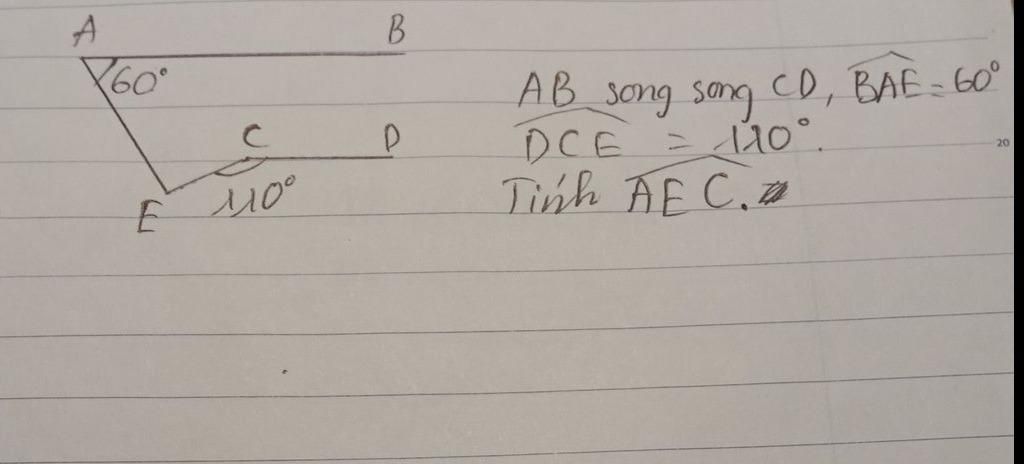 A B
60°
C D
E 110°
AB song song CD, BAE = 60°
DCE = 110°.
Tính AEC.
20